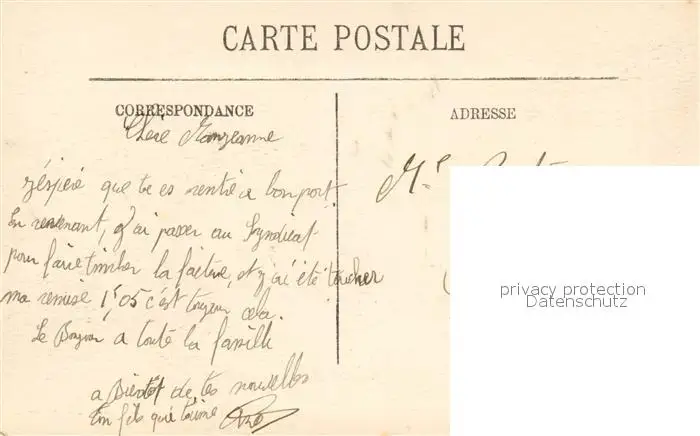 CARTE POSTALE
CORRESPONDANCE
ADRESSE
Chère
j'éspère que tu es rentré a bon port
En revenant, j'ai passer au Syndicat
pour faire timbrer la facture, et j'ai été toucher
ma remise 1f,05 c'est toujours cela.
Le Bonjour a toute la famille
a Bientôt de tes nouvelles
Ton fils qui t'aime
privacy protection
Datenschutz